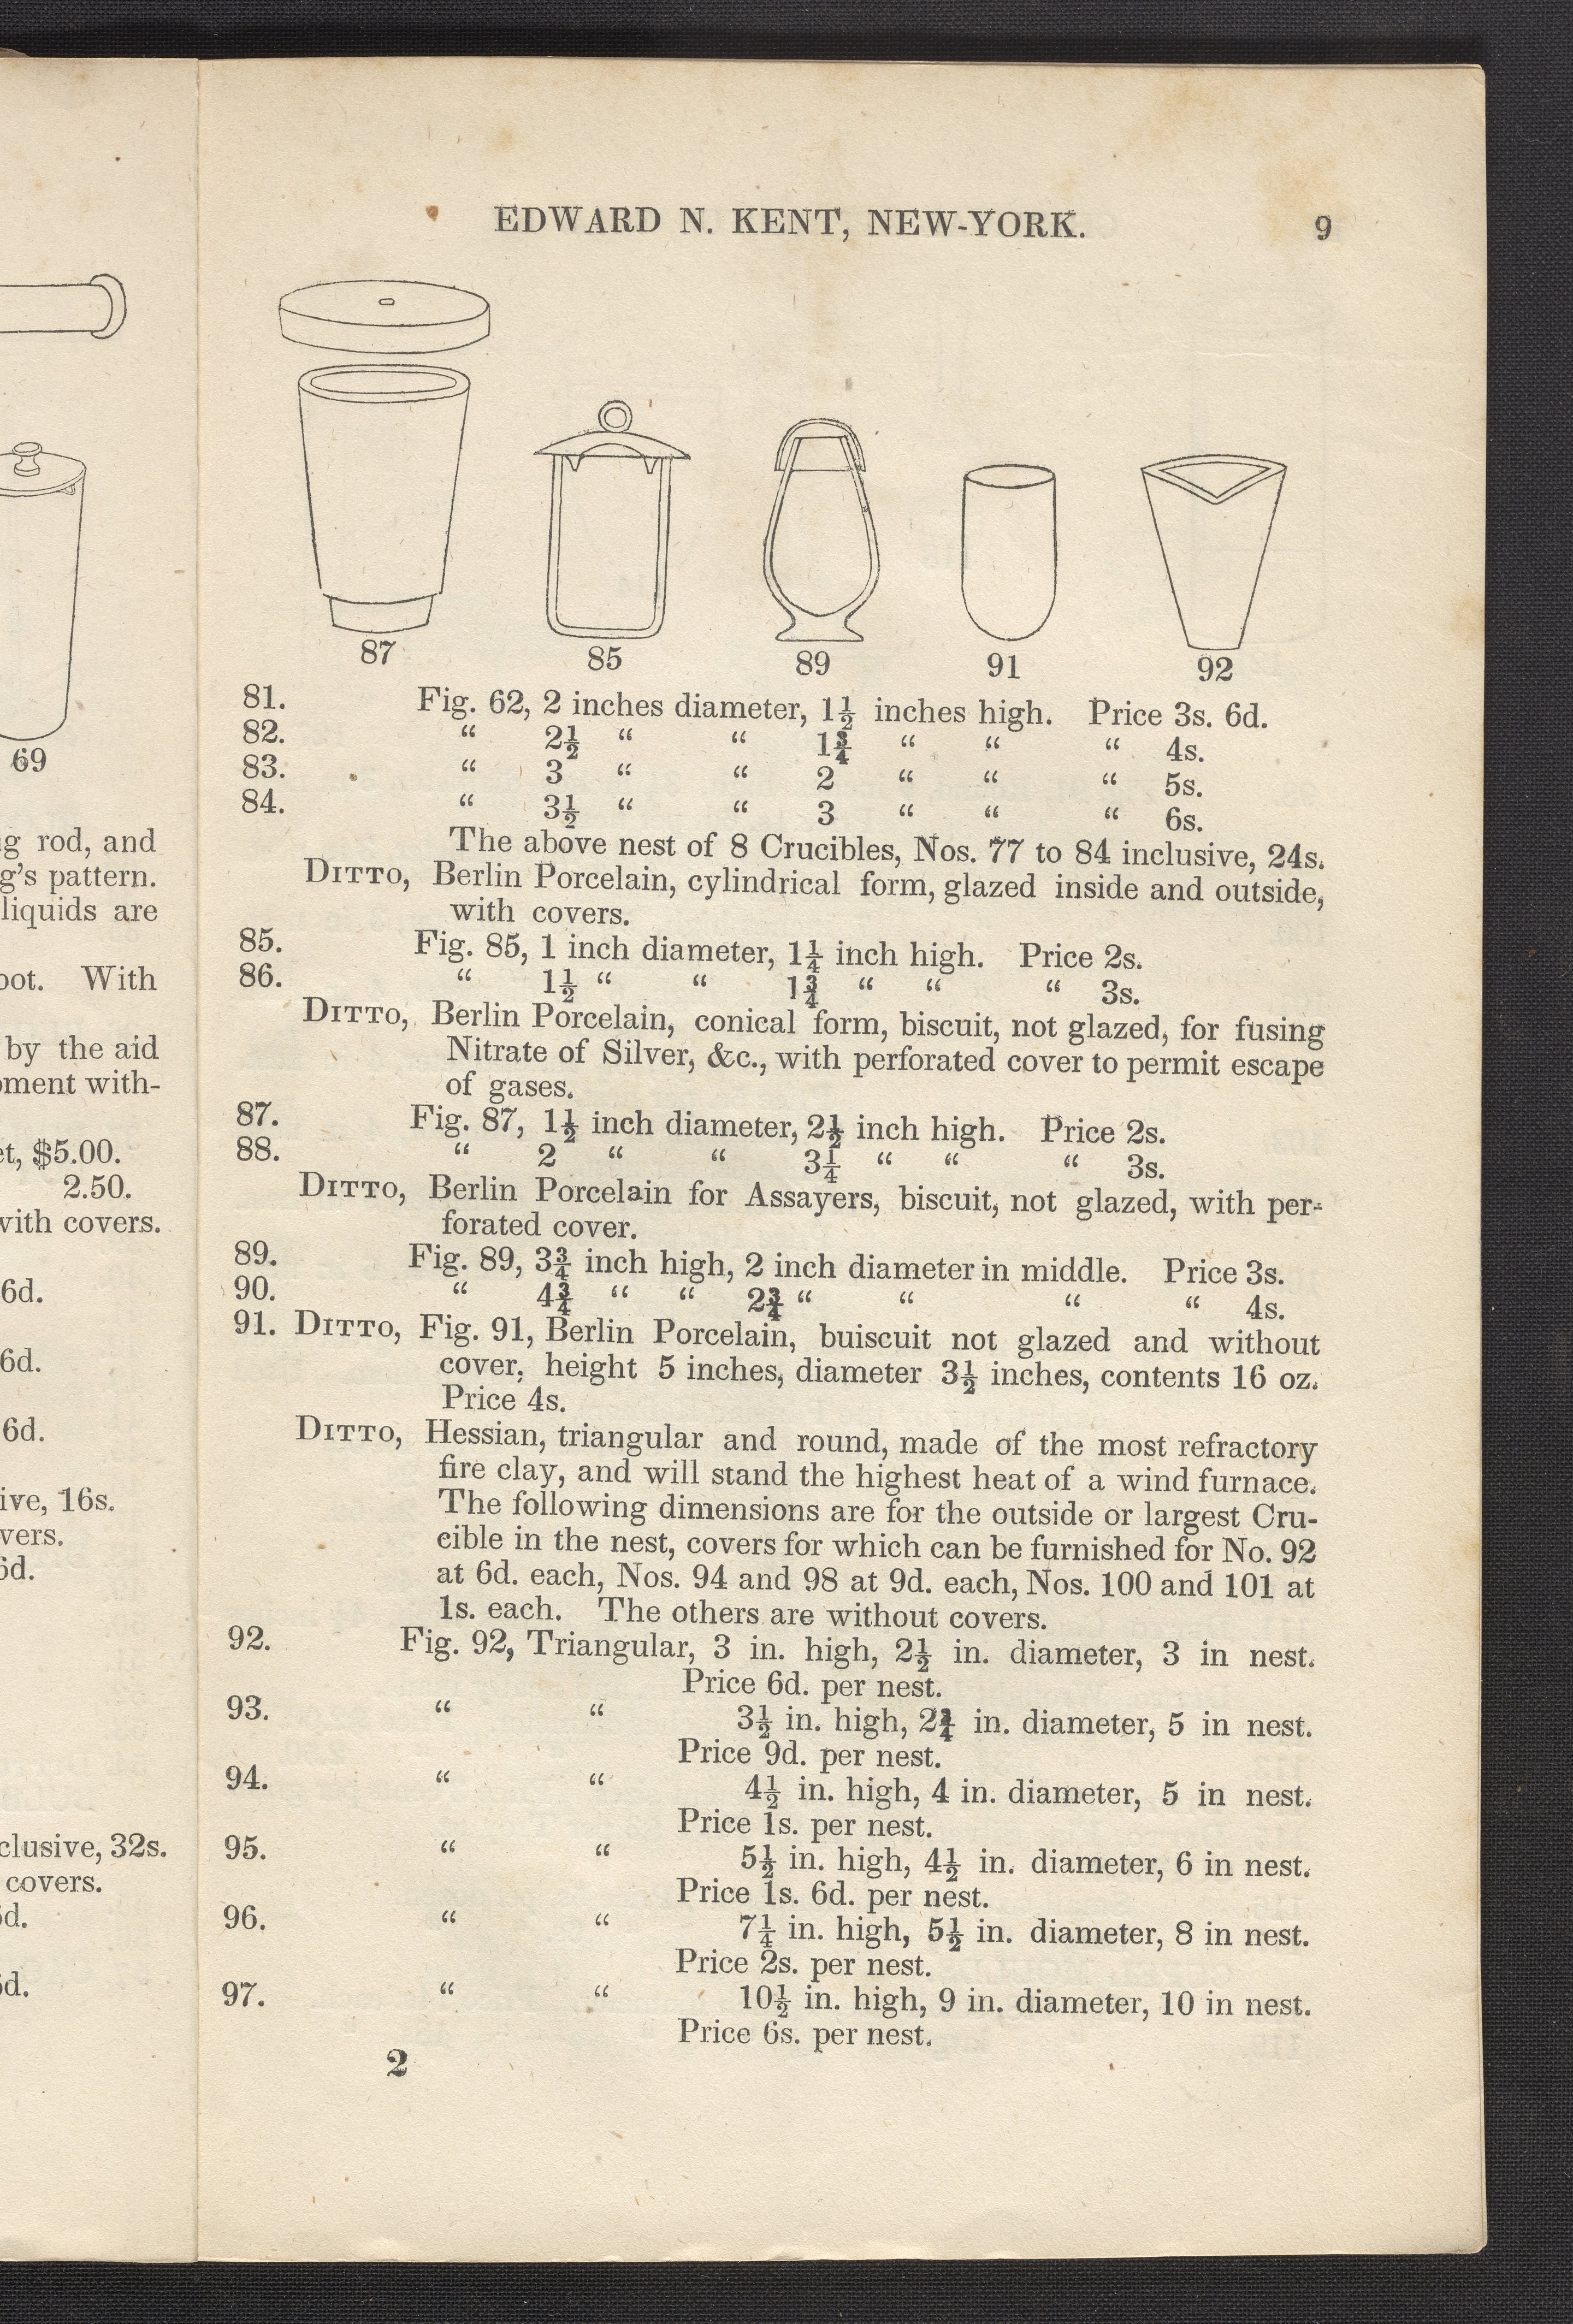 69
g rod, and
g's pattern.
liquids are
With
by the aid
with-
$5.00.
2.50.
with covers.
6d.
6d.
6d.
16s.
6d.
32s.
covers.
EDWARD N. KENT, NEW-YORK. 9
87 85 89 91 92
81. Fig. 62, 2 inches diameter, 1½ inches high. Price 3s. 6d.
82. “ 2½ “ “ 1¾ “ “ “ 4s.
83. “ 3 “ “ 2 “ “ “ 5s.
84. “ 3½ “ “ 3 “ “ “ 6s.
The above nest of 8 Crucibles, Nos. 77 to 84 inclusive, 24s.
DITTO, Berlin Porcelain, cylindrical form, glazed inside and outside,
with covers.
85. Fig. 85, 1 inch diameter, 1¼ inch high. Price 2s.
86. “ 1½ “ “ 1¾ “ “ “ 3s.
DITTO, Berlin Porcelain, conical form, biscuit, not glazed, for fusing
Nitrate of Silver, &c., with perforated cover to permit escape
of gases.
87. Fig. 87, 1½ inch diameter, 2½ inch high. Price 2s.
88. “ 2 “ “ 3¼ “ “ “ 3s.
DITTO, Berlin Porcelain for Assayers, biscuit, not glazed, with per-
forated cover.
89. Fig. 89, 3¾ inch high, 2 inch diameter in middle. Price 3s.
90. “ 4¾ “ “ 2¾ “ “ “ “ 4s.
91. DITTO, Fig. 91, Berlin Porcelain, buiscuit not glazed and without
cover, height 5 inches, diameter 3½ inches, contents 16 oz.
Price 4s.
DITTO, Hessian, triangular and round, made of the most refractory
fire clay, and will stand the highest heat of a wind furnace.
The following dimensions are for the outside or largest Cru-
cible in the nest, covers for which can be furnished for No. 92
at 6d. each, Nos. 94 and 98 at 9d. each, Nos. 100 and 101 at
1s. each. The others are without covers.
92. Fig. 92, Triangular, 3 in. high, 2½ in. diameter, 3 in nest.
Price 6d. per nest.
93. “ “ 3½ in. high, 2¾ in. diameter, 5 in nest.
Price 9d. per nest.
94. “ “ 4½ in. high, 4 in. diameter, 5 in nest.
Price 1s. per nest.
95. “ “ 5½ in. high, 4½ in. diameter, 6 in nest.
Price 1s. 6d. per nest.
96. “ “ 7¼ in. high, 5½ in. diameter, 8 in nest.
Price 2s. per nest.
97. “ “ 10½ in. high, 9 in. diameter, 10 in nest.
Price 6s. per nest.
2